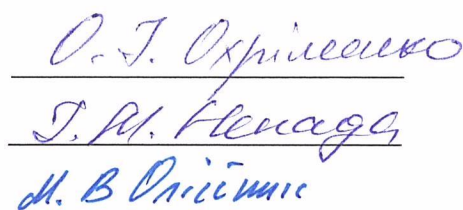 О. Г. Охріменко
Г. М. Ненада
М. В Олійник